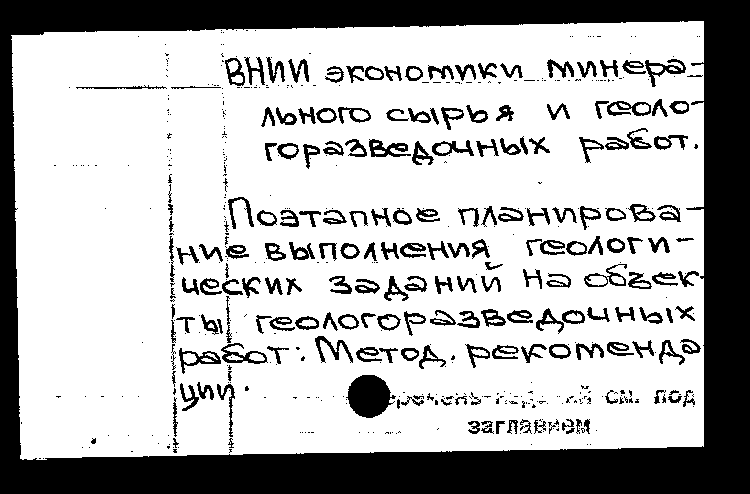 ВНИИ экономики минера-
льного сырья и геоло-
горазведочных работ.
Поэтапное планирова-
ние выполнения геологи-
ческих заданий на объек-
ты геологоразведочных
работ: Метод. рекоменда
ции.
см. под
заглавием